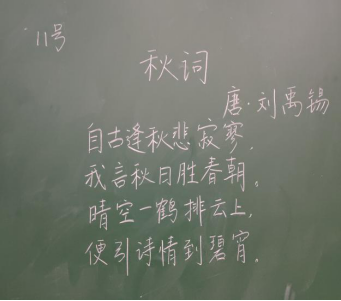 11号
秋词
唐·刘禹锡
自古逢秋悲寂寥，
我言秋日胜春朝。
晴空一鹤排云上，
便引诗情到碧宵。